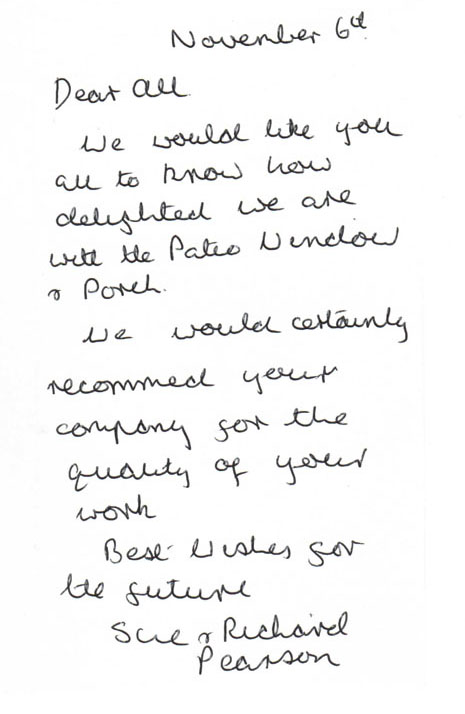 November 6th
Dear All
We would like you
all to know how
delighted we are
with the Patio Window
& Porch.
We would certainly
recommed your
company for the
quality of your
work
Best Wishes for
the future
Sue & Richard
Pearson